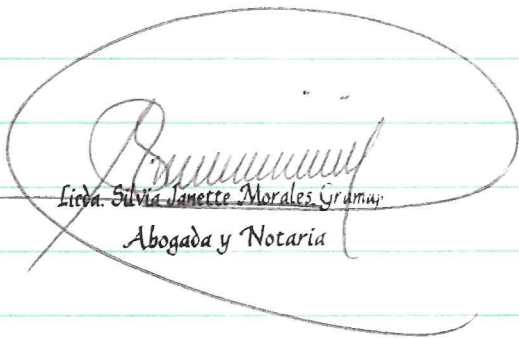 Licda. Silvia Janette Morales
Abogada y Notaria